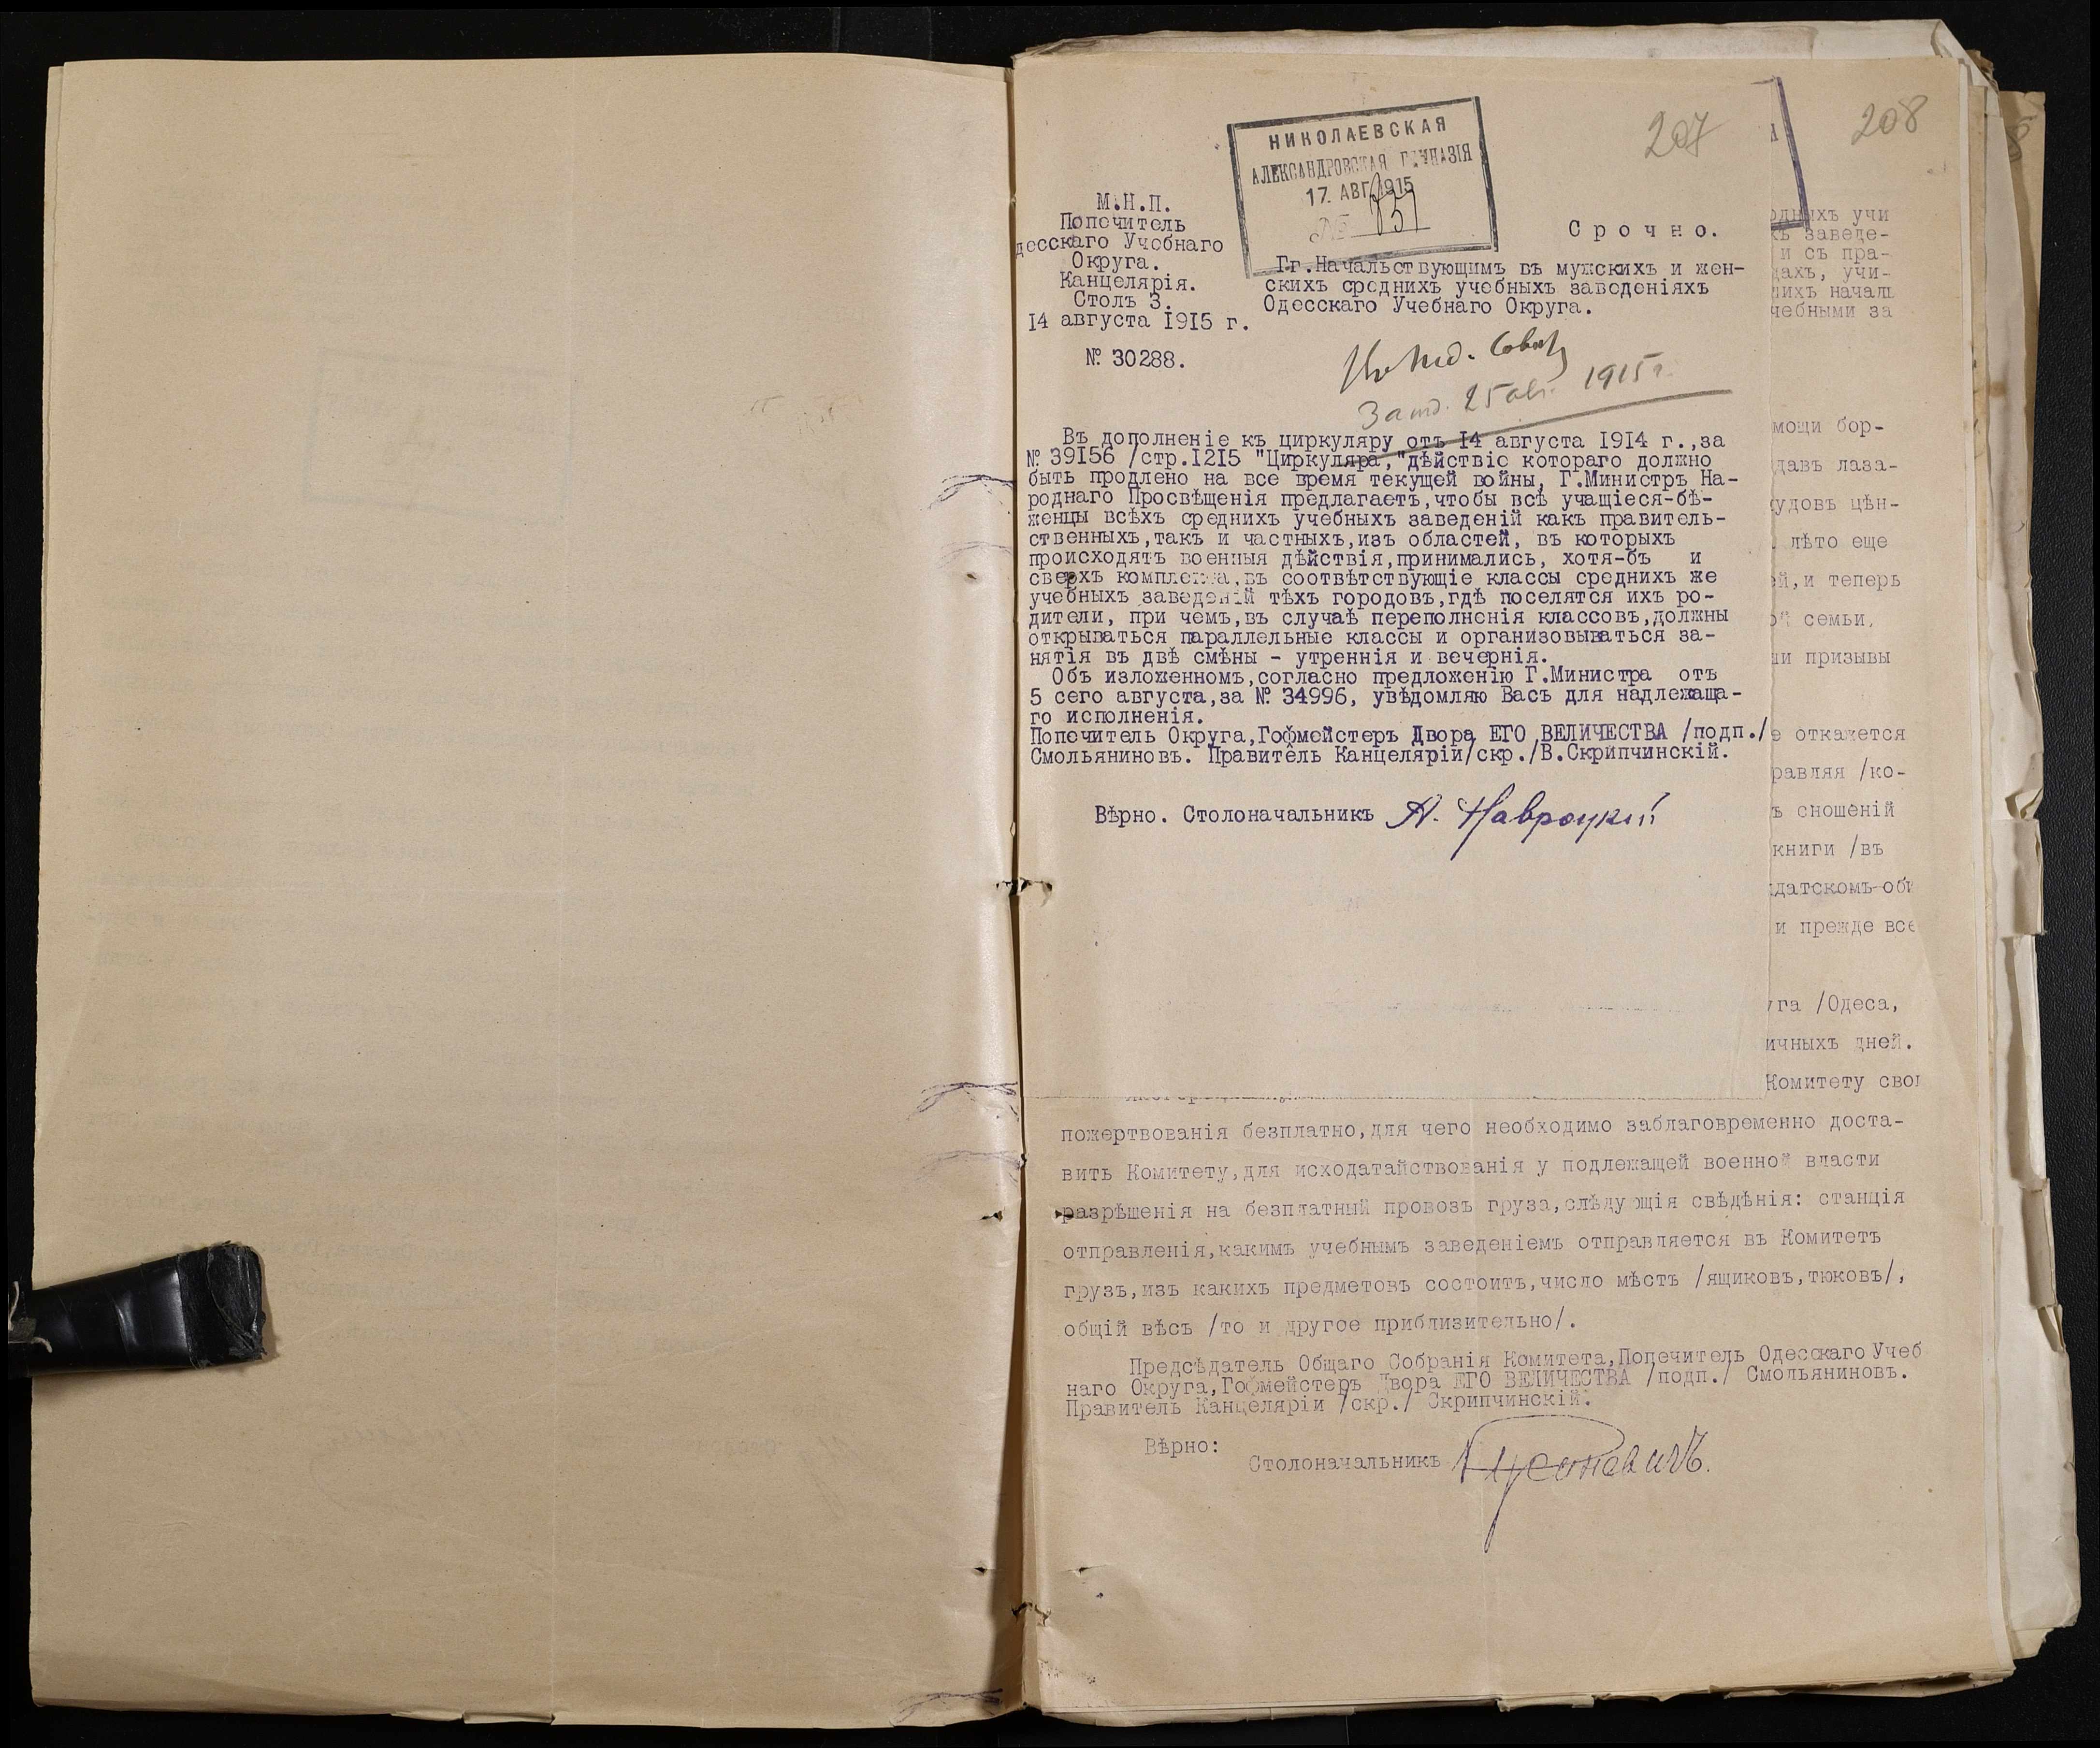 НИКОЛАЕВСКАЯ
АЛЕКСАНДРОВСКАЯ ГИМНАЗІЯ
17. АВГ. 1915
№
207
208
М.Н.П.
Попечитель
десскаго Учебнаго
Округа.
Канцелярія.
Столъ 3.
14 августа 1915 г.
№ 30288.
Срочно.
Гг.Начальствующимъ въ мужскихъ и жен-
скихъ среднихъ учебныхъ заведеніяхъ
Одесскаго Учебнаго Округа.
25 авг. 1915 г.
Въ дополненіе къ циркуляру отъ 14 августа 1914 г.,за
№ 39156 /стр.1215 "Циркуляра","дѣйствіе котораго должно
быть продлено на все время текущей войны, Г.Министръ На-
роднаго Просвѣщенія предлагаетъ,чтобы всѣ учащіеся-бѣ-
женцы всѣхъ среднихъ учебныхъ заведеній какъ правитель-
ственныхъ,такъ и частныхъ,изъ областей, въ которыхъ
происходятъ военныя дѣйствія,принимались, хотя-бъ и
сверхъ комплекта,въ соотвѣтствующіе классы среднихъ же
учебныхъ заведеній тѣхъ городовъ,гдѣ поселятся ихъ ро-
дители, при чемъ,въ случаѣ переполненія классовъ,должны
открываться параллельные классы и организовываться за-
нятія въ двѣ смѣны - утреннія и вечернія.
Объ изложенномъ,согласно предложенію Г.Министра отъ
5 сего августа,за № 34996, увѣдомляю Васъ для надлежаща-
го исполненія.
Попечитель Округа,Гофмейстеръ Двора ЕГО ВЕЛИЧЕСТВА /подп./
Смольяниновъ. Правитель Канцеляріи/скр./В.Скрипчинскій.
Вѣрно. Столоначальникъ А. Навроцкій
одныхъ учи
хъ заведе-
и съ пра-
дахъ, учи-
щихъ началь
чебными за
мощи бор-
давъ лаза-
удовъ цѣн-
лѣто еще
ей,и теперь
ой семьи,
ши призывы
е откажется
равляя /ко-
ъ сношеній
книги /въ
датскомъ-оби
и прежде все
уга /Одеса,
ичныхъ дней.
Комитету свои
пожертвованія безплатно,для чего необходимо заблаговременно доста-
вить Комитету,для исходатайствованія у подлежащей военной власти
разрѣшенія на безплатный провозъ груза,слѣдующія свѣдѣнія: станція
отправленія,какимъ учебнымъ заведеніемъ отправляется въ Комитетъ
грузъ,изъ какихъ предметовъ состоитъ,число мѣстъ /ящиковъ,тюковъ/,
общій вѣсъ /то и другое приблизительно/.
Предсѣдатель Общаго Собранія Комитета,Попечитель Одесскаго Учеб
наго Округа,Гофмейстеръ Двора ЕГО ВЕЛИЧЕСТВА /подп./ Смольяниновъ.
Правитель Канцеляріи /скр./ Скрипчинскій.
Вѣрно:
Столоначальникъ